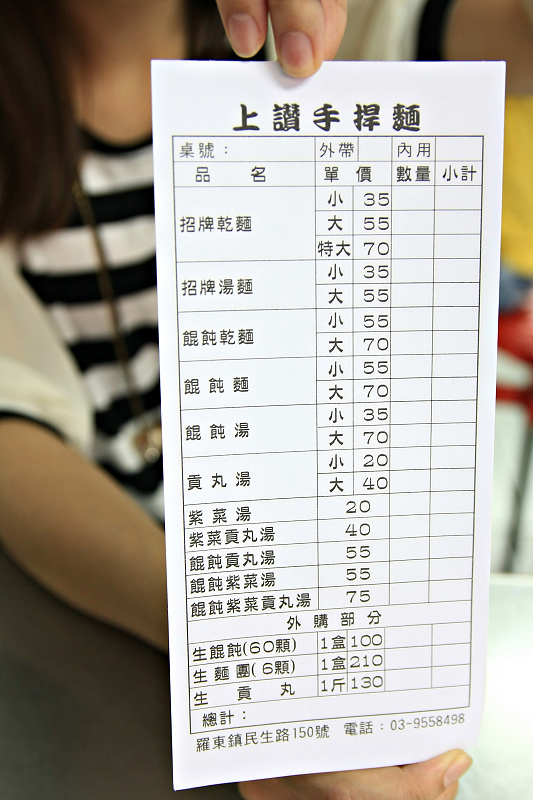 上讚手捍麵
桌號： 外帶 內用
品名 單價 數量 小計
招牌乾麵 小 35
大 55
特大 70
招牌湯麵 小 35
大 55
餛飩乾麵 小 55
大 70
餛飩麵 小 55
大 70
餛飩湯 小 35
大 70
貢丸湯 小 20
大 40
紫菜湯 20
紫菜貢丸湯 40
餛飩貢丸湯 55
餛飩紫菜湯 55
餛飩紫菜貢丸湯 75
外購部分
生餛飩(60顆) 1盒 100
生麵團(6顆) 1盒 210
生貢丸 1斤 130
總計：
羅東鎮民生路150號 電話：03-9558498